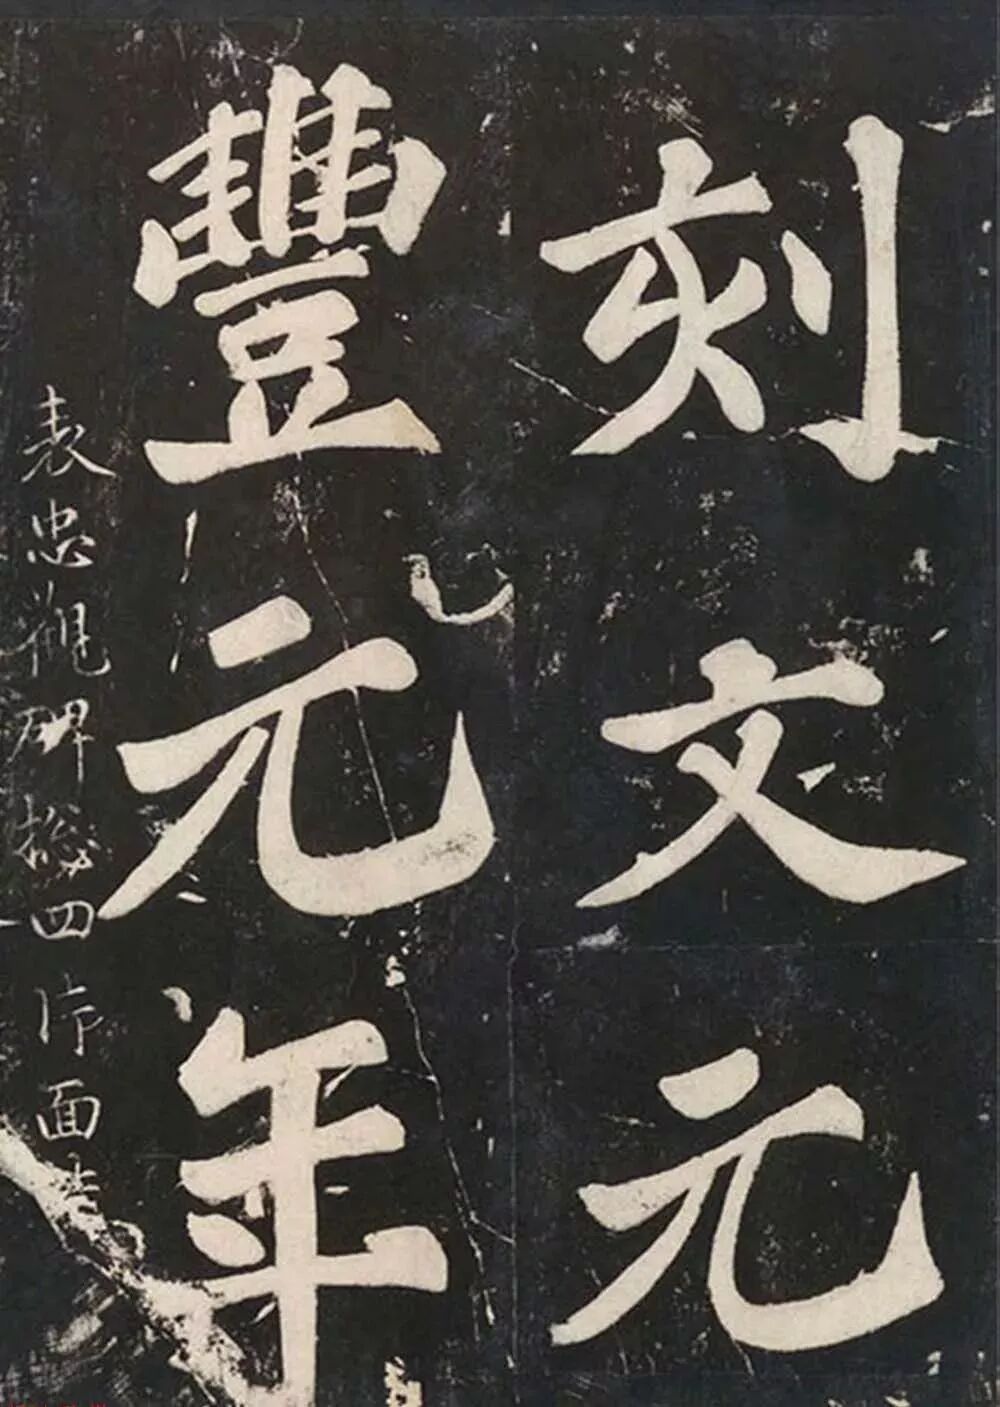 刻文元
豐元年
表忠觀碑总四片面